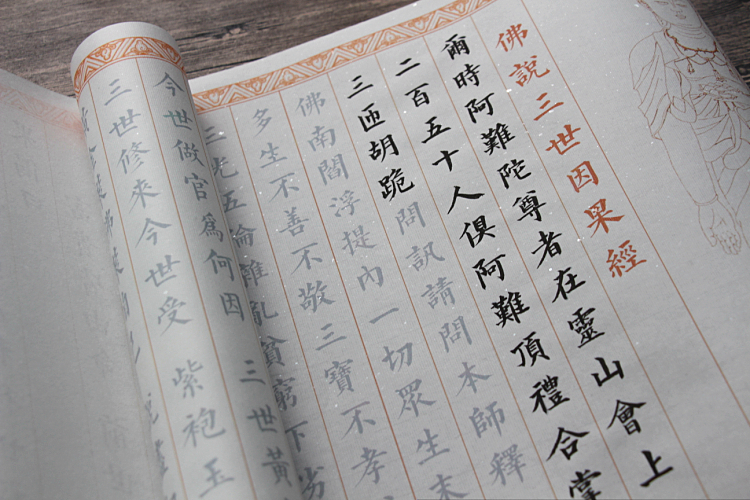 佛說三世因果經
爾時阿難陀尊者在靈山會上
二百五十人俱阿難頂禮合掌
三匝胡跪問訊請問本師釋
佛南閻浮提內一切眾生末
多生不善不敬三寶不孝
三光五倫雜亂貧窮下劣
今世做官爲何因 三世黃
三世修來今世受 紫袍玉